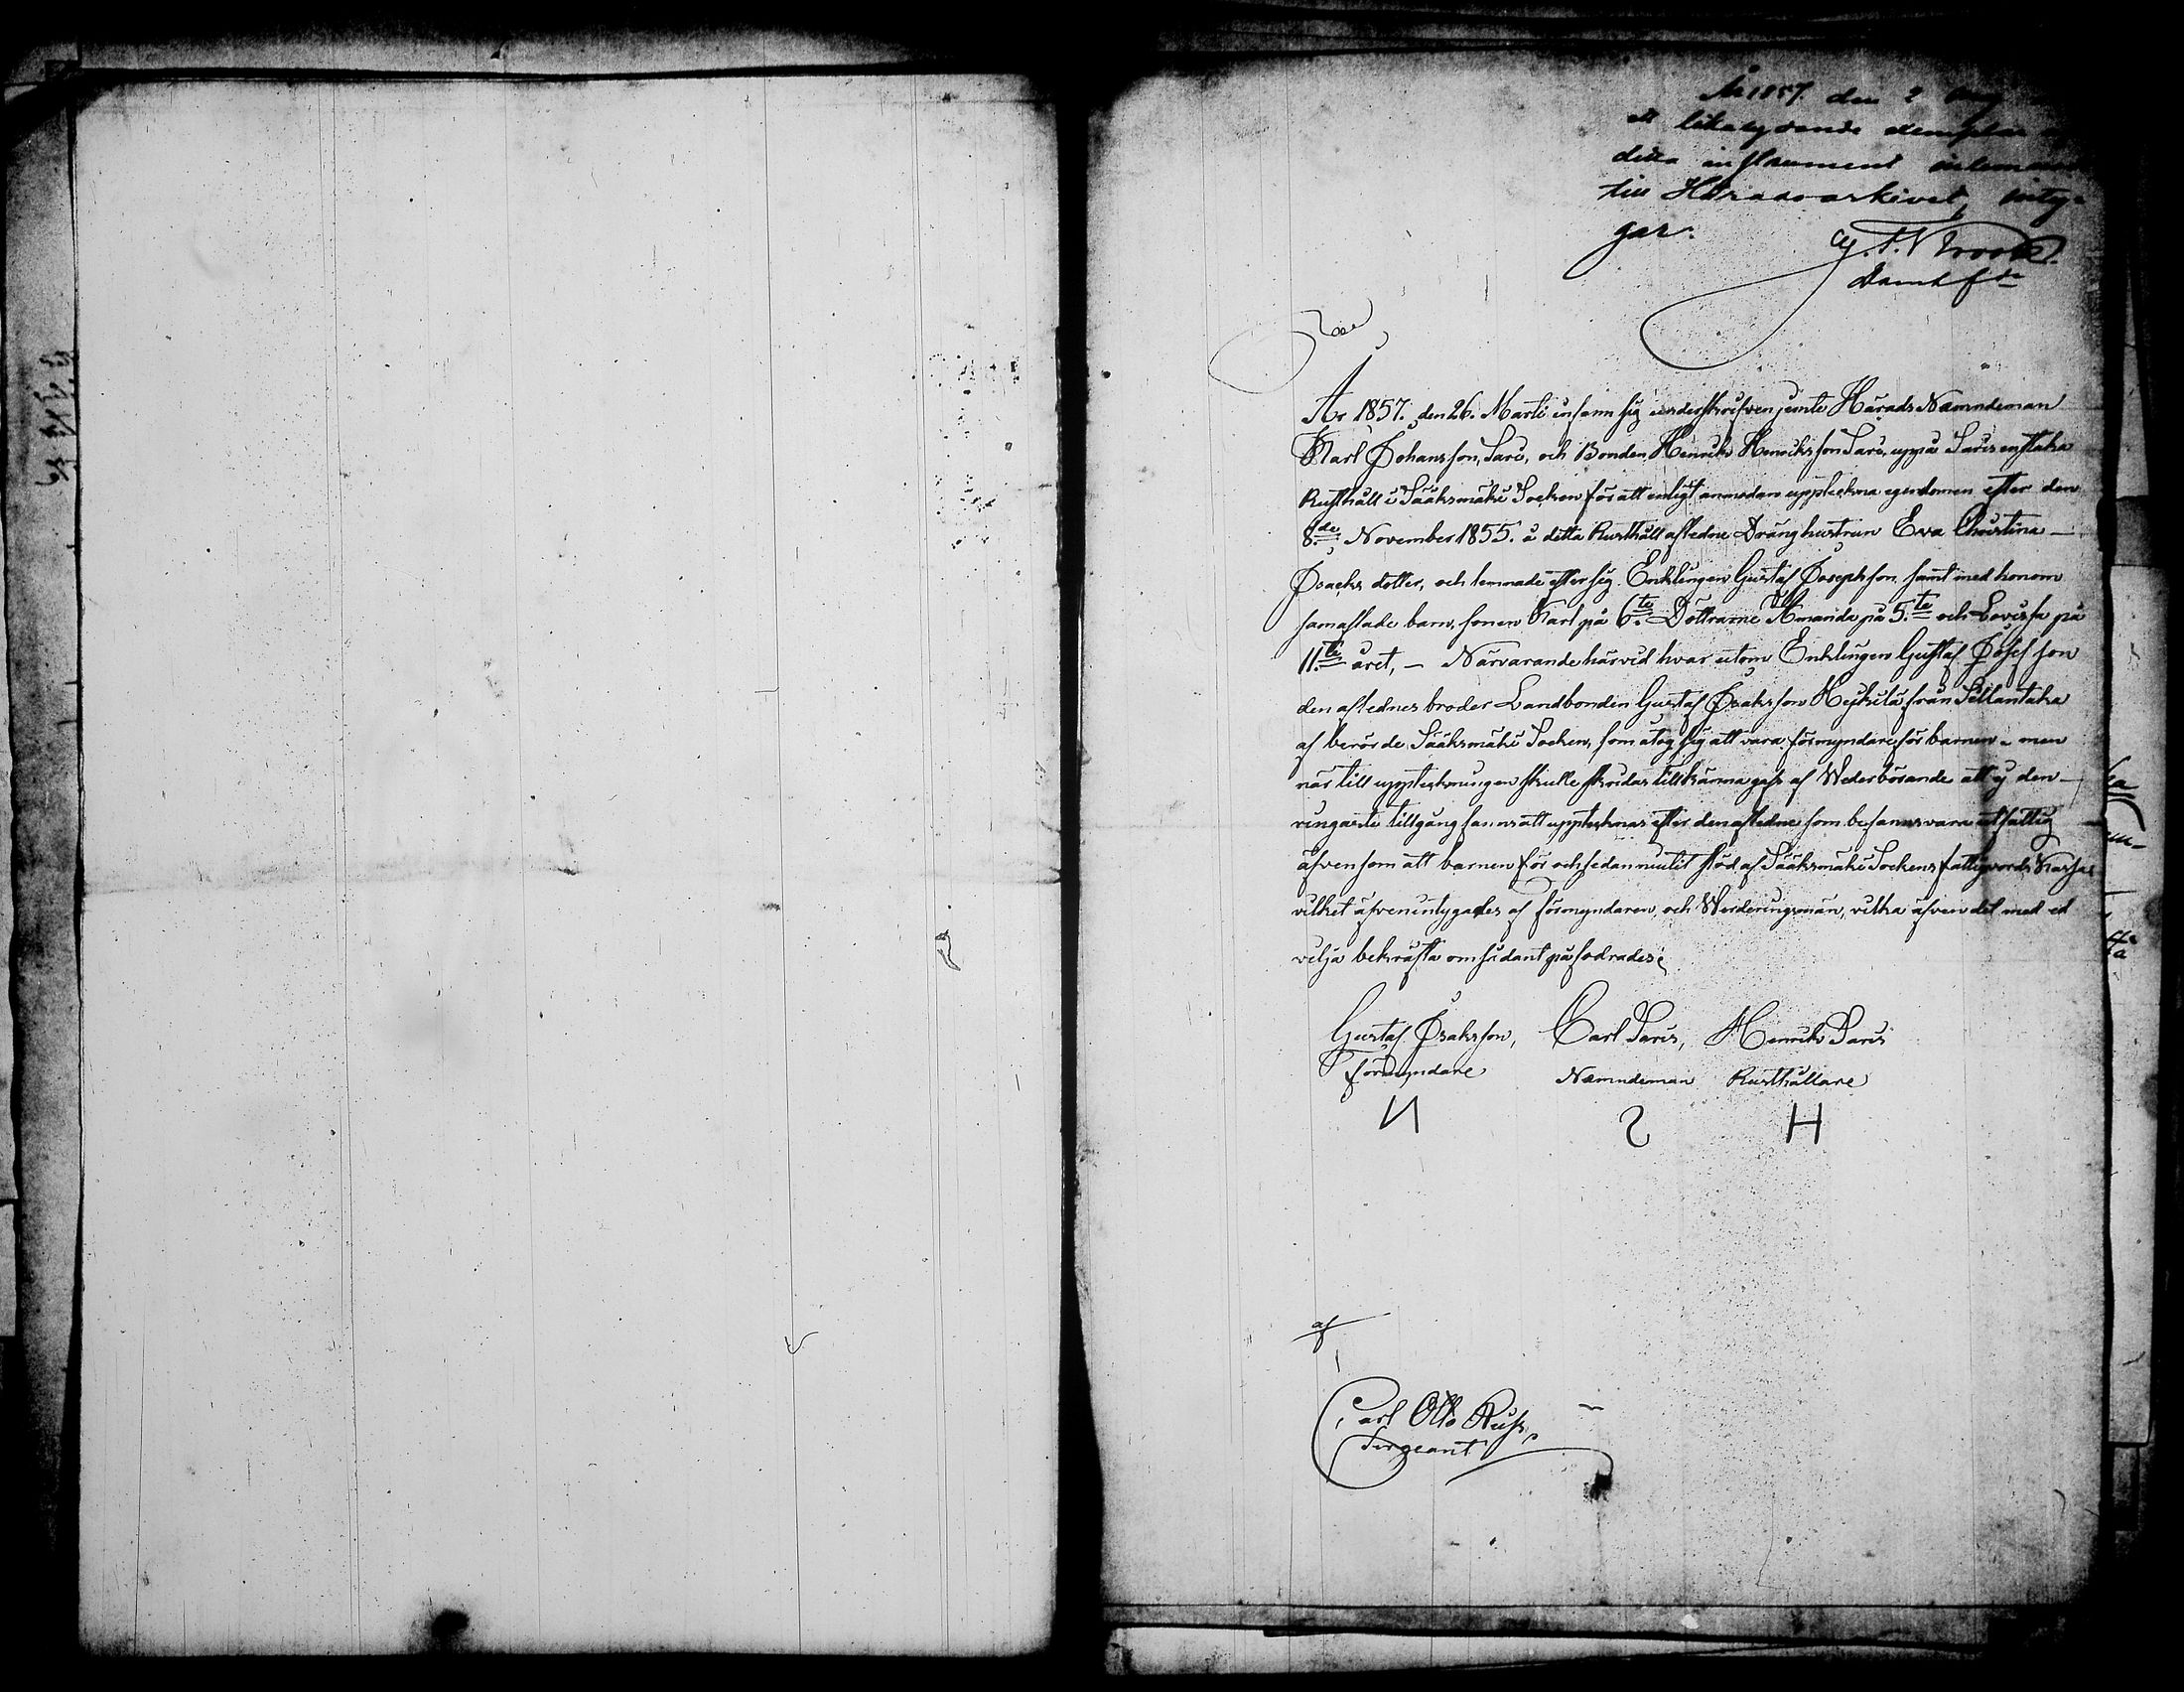 År 1857. den 2 Maj
ett likalydande exemplar
detta instrument inlemnadt
till Häradsarkivet, inty-
gar.
År 1857. den 26. Marti infann sig underskrifven jemte Härads Nämndeman
Karl Johansson, Saris, och Bonden Henrick Henricksson Saris, uppå Saris enstaka
Rusthåll i Sääksmäki Socken för att enligt anmodan uppteckna egendomen efter den
8.de November 1855. å detta Rusthåll afledne Dränghustrun Eva Christina —
Isacks dotter, och lemnade efter sig Enklingen Gustaf Josephson samt med honom
samaflade barn, sonen Karl på 6.te Döttrarne Amanda på 5.te och Lovisa på
11.te året, — Närvarande härvid hvar utom Enklingen Gustaf Josefson
den aflednes broder Landbonden Gustaf Isaksson Heikkilä från Sillantaka
af berörde Sääksmäki Socken, som åtog sig att vara förmyndare för barnen - men
när till uppteckningen skulle skridas tillkänna gafs af Wederbörande att ej den —
ringaste tillgång fanns att upptecknas efter den afledne som befanns vara utfattig
äfvensom att barnen för och sedan niutit stöd af Sääksmäki Sockens fattigvårds Kassa
vilket äfven intygades af förmyndaren, och Värderingsmän, vilka äfven det med ed
vilja bekräfta om sådant påfodrades;
Gustaf Isaksson, Carl Saris, Henrick Saris
förmyndare Nämndeman Rusthållare
И S H
af
Carl Otto Russ,
Sergeant